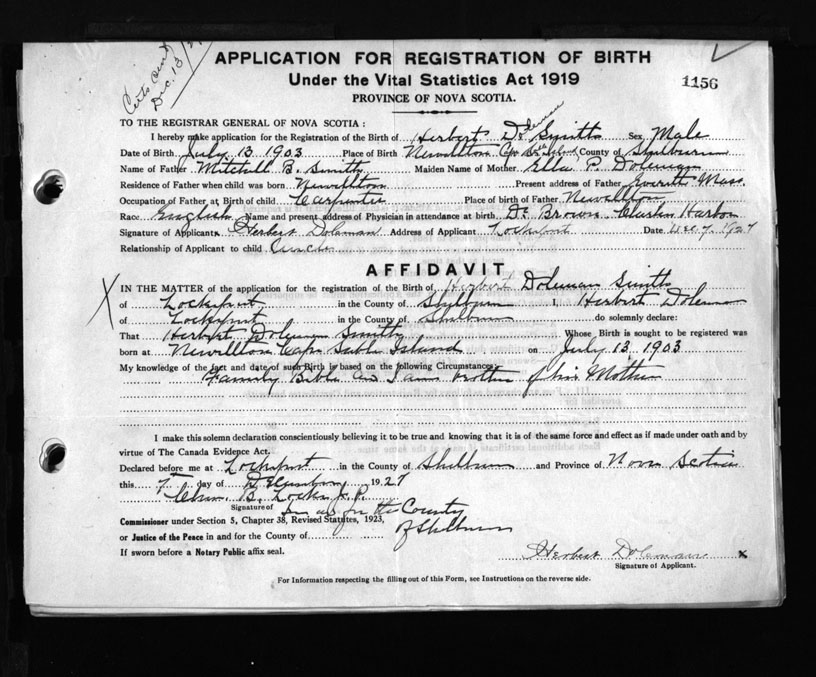 Certs sent
Dec. 13/27
APPLICATION FOR REGISTRATION OF BIRTH
Under the Vital Statistics Act 1919
1156
PROVINCE OF NOVA SCOTIA.
TO THE REGISTRAR GENERAL OF NOVA SCOTIA :
I hereby make application for the Registration of the Birth of Herbert Doleman Smith Sex Male
Date of Birth July 13 1903 Place of Birth Newellton Cape Sable Island County of Shelburne
Name of Father Mitchell B. Smith Maiden Name of Mother Ella P. Doleman
Residence of Father when child was born Newellton Present address of Father Everett Mass.
Occupation of Father at Birth of child Carpenter Place of birth of Father Newellton
Race English Name and present address of Physician in attendance at birth Dr Brown Clarks Harbor
Signature of Applicant Herbert Doleman Address of Applicant Lockeport Date Dec. 7. 1927
Relationship of Applicant to child Uncle
AFFIDAVIT
IN THE MATTER of the application for the registration of the Birth of Herbert Doleman Smith
of Lockeport in the County of Shelburne I, Herbert Doleman
of Lockeport in the County of Shelburne do solemnly declare:
That Herbert Doleman Smith Whose Birth is sought to be registered was
born at Newellton Cape Sable Island on July 13. 1903
My knowledge of the fact and date of such Birth is based on the following Circumstances:
Family Bible and I am brother of his Mother
I make this solemn declaration conscientiously believing it to be true and knowing that it is of the same force and effect as if made under oath and by
virtue of The Canada Evidence Act.
Declared before me at Lockeport in the County of Shelburne and Province of Nova Scotia
this 7 day of December 1927
B. Locke J.P.
Signature of
in and for the County
Commissioner under Section 5, Chapter 38, Revised Statutes, 1923,
of Shelburne
or Justice of the Peace in and for the County of
If sworn before a Notary Public affix seal.
Herbert Doleman x
Signature of Applicant.
For Information respecting the filling out of this Form, see Instructions on the reverse side.